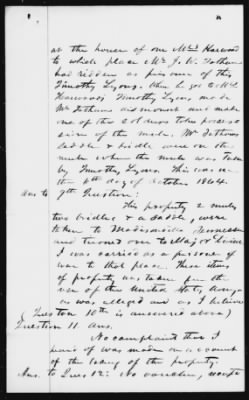 at the house of one Mrs Harwood
to which place Mr J. W. Fathom
had ridden as prisoner of this
Timothy Lyons. When he got to Mrs
Harwoods Timothy Lyons made
Mr Fathom dismount and make
one of the soldiers take posses-
sion of the mule. Mr Fathoms
saddle & bridle were on the
mule when the mule was taken
by Timothy Lyons. This was on
the 6th day of October 1864.
Ans to 9th Question:
This property 2 mules
two bridles & a saddle, were
taken to Madisonville Tennessee
and turned over to Major
I was carried as a prisoner of
war to that place. These items
of property was taken for the
use of the United States Army
as was alleged and as I believe
(Question 10th is answered above)
Question 11 Ans.
No complaint that I
know of was made on account
of the taking of the property.
Ans. to Ques 12: No voucher, receipt